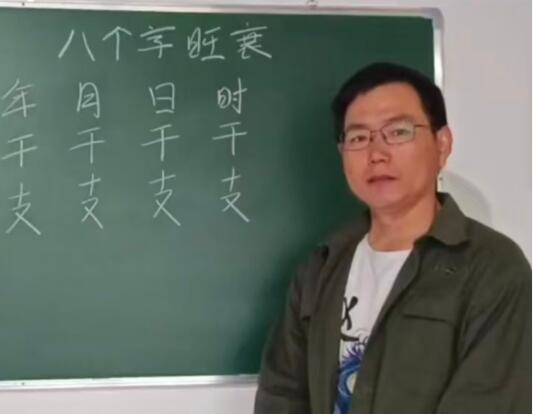 八个字旺衰
年 月 日 时
干 干 干 干
支 支 支 支